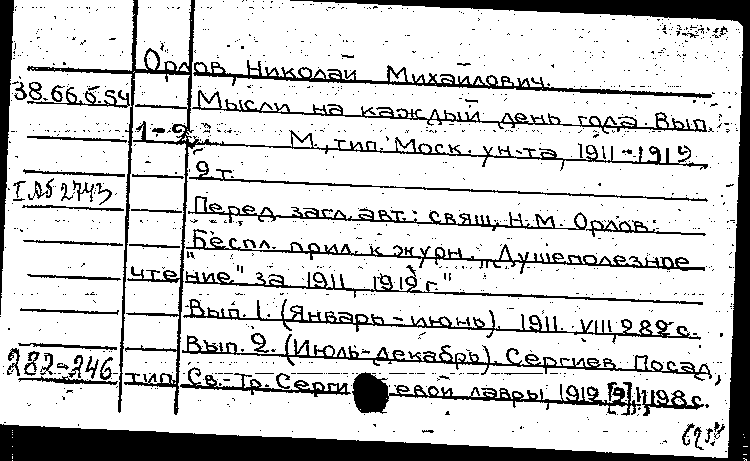 Орлов, Николай Михайлович.
38.66.6.54 Мысли на каждый день года. Вып.
1-2. М., тип. Моск. ун-та, 1911-1912
2 т.
I 2743
Перед загл. авт.: свящ. Н.М. Орлов.
Беспл. прил. к журн. „Душеполезное
чтение" за 1911, 1912 г."
Вып. 1. (Январь - июнь). 1911. VIII, 282 с.
Вып. 2. (Июль-декабрь). Сергиев Посад,
282-246 тип. Св.-Тр. Сергиевой лавры, 1912. [2], 198 с.